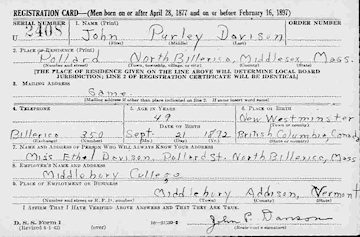 REGISTRATION CARD—(Men born on or after April 28, 1877 and on or before February 16, 1897)
SERIAL NUMBER
1. NAME (Print)
ORDER NUMBER
U 2408
John Purley Davison
(First) (Middle) (Last)
2. PLACE OF RESIDENCE (Print)
Pollard North Billerica, Middlesex, Mass.
(Number and street) (Town, township, village, or city) (County) (State)
[THE PLACE OF RESIDENCE GIVEN ON THE LINE ABOVE WILL DETERMINE LOCAL BOARD
JURISDICTION; LINE 2 OF REGISTRATION CERTIFICATE WILL BE IDENTICAL]
3. MAILING ADDRESS
Same
[Mailing address if other than place indicated on line 2. If same insert word same]
4. TELEPHONE
5. AGE IN YEARS
6. PLACE OF BIRTH
49
New Westminster
DATE OF BIRTH
(Town or county)
Billerica 350
Sept. 21 1892
British Columbia, Canada
(Exchange) (Number)
(Mo.) (Day) (Yr.)
(State or country)
7. NAME AND ADDRESS OF PERSON WHO WILL ALWAYS KNOW YOUR ADDRESS
Miss Ethel Davison, Pollard St. North Billerica, Mass
8. EMPLOYER'S NAME AND ADDRESS
Middlebury College
9. PLACE OF EMPLOYMENT OR BUSINESS
Middlebury Addison, Vermont
(Number and street or R. F. D. number) (Town) (County) (State)
I AFFIRM THAT I HAVE VERIFIED ABOVE ANSWERS AND THAT THEY ARE TRUE.
D. S. S. Form 1
(Revised 4-1-42)
(over)
John P. Davison